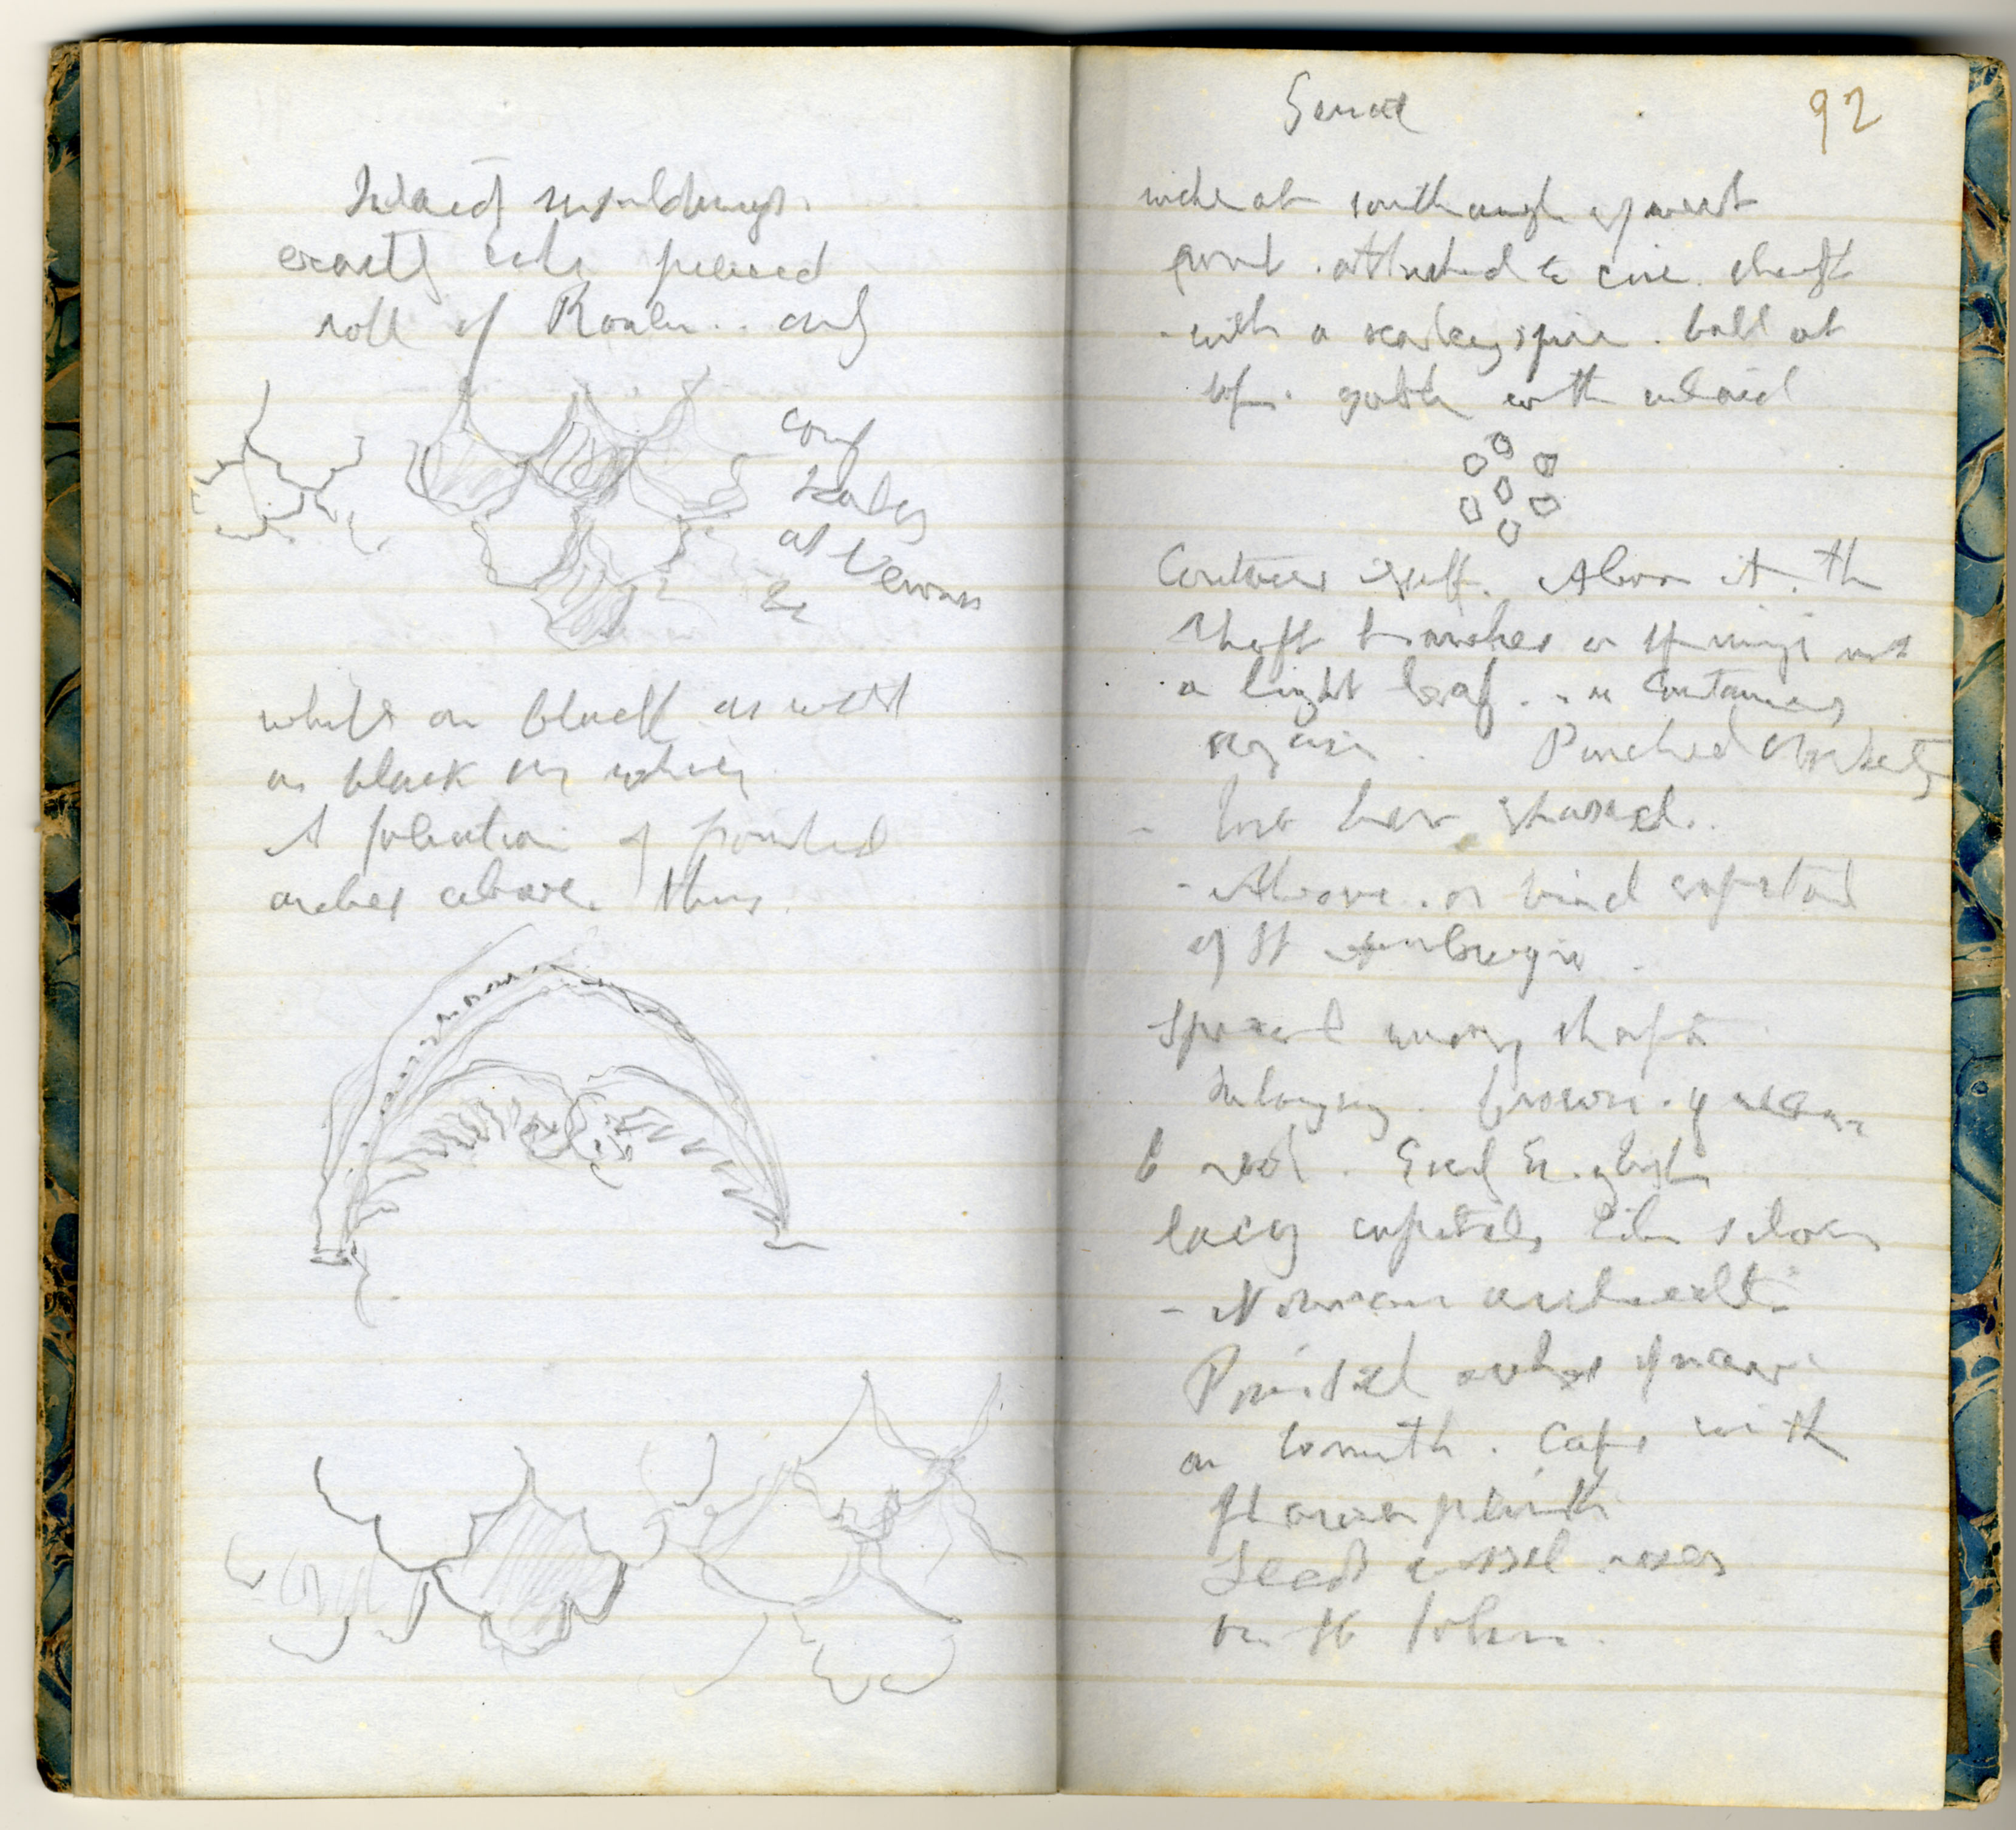 Inlaid mouldings.
exactly like pierced
roll of Rouen.. only
conf
Scales
at Verona
&c
white on black as well
as black on white
A foliation of pointed
arches above. Thus.
92
niche at south angle of west
front . attached to circ. shaft
- with a scaley spire . ball at
top. gable with inlaid
Continues itself. Above it. the
shaft branches or springs
a light leaf . . continues
again . Punched
- but here chased.
- Above . or bird capital
of St Ambrogio
Spiral shafts
Inlaying . brown . green
& red . Early English
lacy capitals like
- Norman
Pointed arches of nave
as south . Caps with
flower plinth
Lead roses
on St John.